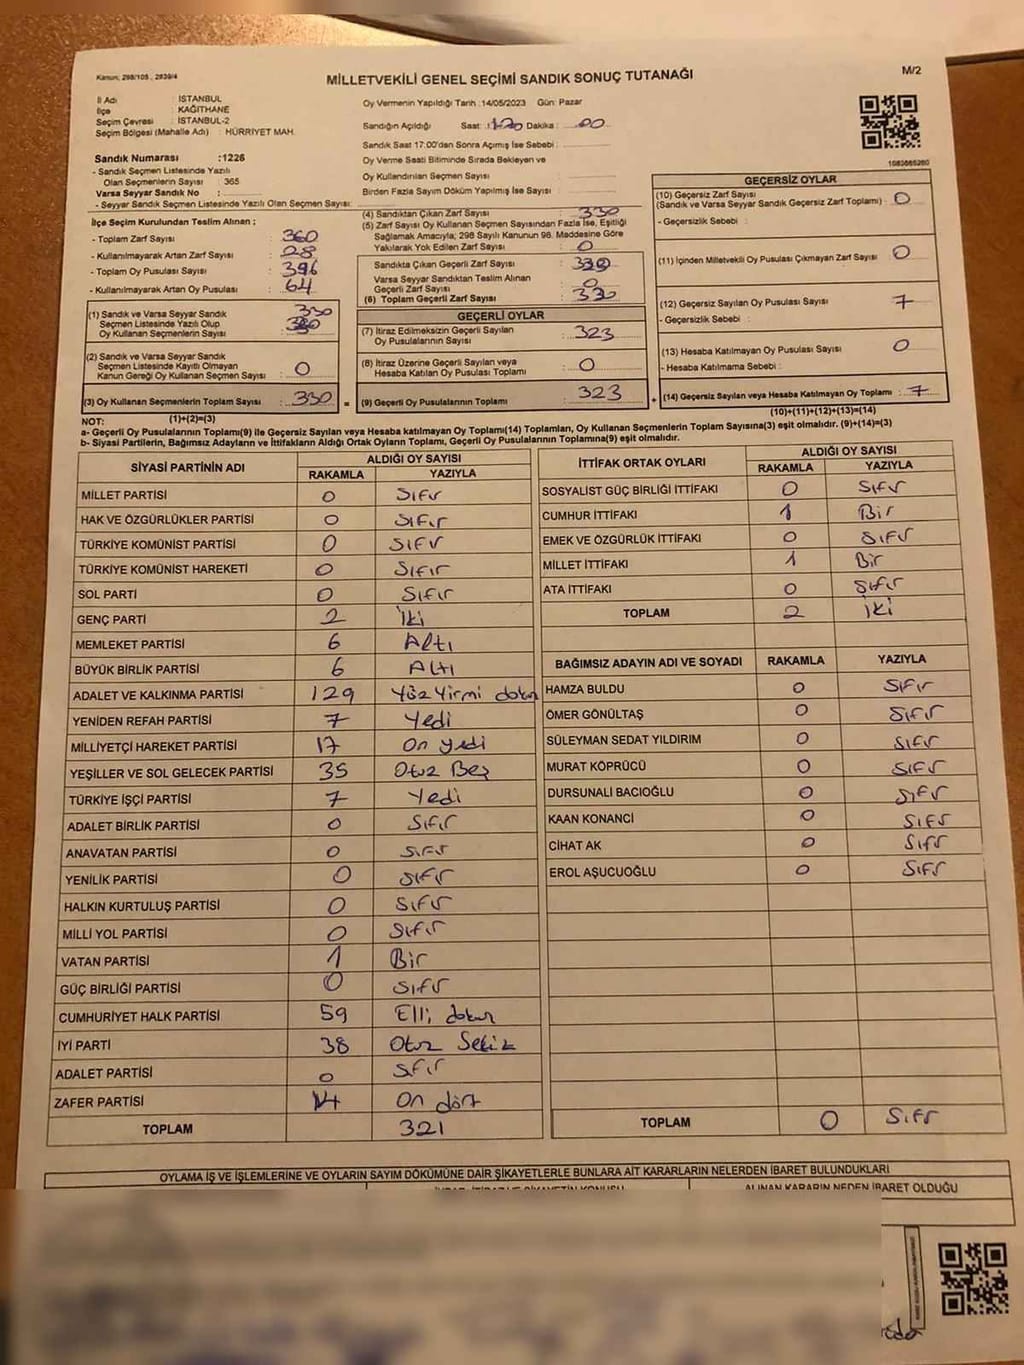 Kanun; 298/105 , 2839/4
MİLLETVEKİLİ GENEL SEÇİMİ SANDIK SONUÇ TUTANAĞI
M/2
İl Adı : İSTANBUL
İlçe : KAĞITHANE
Seçim Çevresi : İSTANBUL-2
Seçim Bölgesi (Mahalle Adı) : HÜRRİYET MAH.
Sandık Numarası :1226
- Sandık Seçmen Listesinde Yazılı
Olan Seçmenlerin Sayısı : 365
Varsa Seyyar Sandık No :
- Seyyar Sandık Seçmen Listesinde Yazılı Olan Seçmen Sayısı:
Oy Vermenin Yapıldığı Tarih :14/05/2023 Gün: Pazar
Sandığın Açıldığı Saat: Dakika : 00
Sandık Saat 17:00'den Sonra Açımış İse Sebebi :
Oy Verme Saati Bitiminde Sırada Bekleyen ve
Oy Kullandırılan Seçmen Sayısı :
Birden Fazla Sayım Döküm Yapılmış İse Sayısı :
1083665280
İlçe Seçim Kurulundan Teslim Alınan ;
- Toplam Zarf Sayısı : 360
- Kullanılmayarak Artan Zarf Sayısı : 28
- Toplam Oy Pusulası Sayısı : 396
- Kullanılmayarak Artan Oy Pusulası : 64
(1) Sandık ve Varsa Seyyar Sandık
Seçmen Listesinde Yazılı Olup
Oy Kullanan Seçmenlerin Sayısı : 330
(2) Sandık ve Varsa Seyyar Sandık
Seçmen Listesinde Kayıtlı Olmayan
Kanun Gereği Oy Kullanan Seçmen Sayısı : 0
(3) Oy Kullanan Seçmenlerin Toplam Sayısı : 330 =
(1)+(2)=(3)
(4) Sandıktan Çıkan Zarf Sayısı : 330
(5) Zarf Sayısı Oy Kullanan Seçmen Sayısından Fazla İse, Eşitliği
Sağlamak Amacıyla; 298 Sayılı Kanunun 98. Maddesine Göre
Yakılarak Yok Edilen Zarf Sayısı : 0
Sandıkta Çıkan Geçerli Zarf Sayısı : 330
Varsa Seyyar Sandıktan Teslim Alınan
Geçerli Zarf Sayısı : 0
(6) Toplam Geçerli Zarf Sayısı : 330
GEÇERLİ OYLAR
(7) İtiraz Edilmeksizin Geçerli Sayılan
Oy Pusulalarının Sayısı : 323
(8) İtiraz Üzerine Geçerli Sayılan veya
Hesaba Katılan Oy Pusulası Toplamı : 0
(9) Geçerli Oy Pusulalarının Toplamı : 323 +
GEÇERSİZ OYLAR
(10) Geçersiz Zarf Sayısı
(Sandık ve Varsa Seyyar Sandık Geçersiz Zarf Toplamı) : 0
- Geçersizlik Sebebi :
(11) İçinden Milletvekili Oy Pusulası Çıkmayan Zarf Sayısı : 0
(12) Geçersiz Sayılan Oy Pusulası Sayısı : 7
- Geçersizlik Sebebi :
(13) Hesaba Katılmayan Oy Pusulası Sayısı : 0
- Hesaba Katılmama Sebebi :
(14) Geçersiz Sayılan veya Hesaba Katılmayan Oy Toplamı : 7
(10)+(11)+(12)+(13)=(14)
NOT:
a- Geçerli Oy Pusulalarının Toplamı(9) ile Geçersiz Sayılan veya Hesaba katılmayan Oy Toplamı(14) Toplamları, Oy Kullanan Seçmenlerin Toplam Sayısına(3) eşit olmalıdır. (9)+(14)=(3)
b- Siyasi Partilerin, Bağımsız Adayların ve İttifakların Aldığı Ortak Oyların Toplamı, Geçerli Oy Pusulalarının Toplamına(9) eşit olmalıdır.
SİYASİ PARTİNİN ADI ALDIĞI OY SAYISI
RAKAMLA YAZIYLA
MİLLET PARTİSİ 0 Sıfır
HAK VE ÖZGÜRLÜKLER PARTİSİ 0 Sıfır
TÜRKİYE KOMÜNİST PARTİSİ 0 Sıfır
TÜRKİYE KOMÜNİST HAREKETİ 0 Sıfır
SOL PARTİ 0 Sıfır
GENÇ PARTİ 2 İki
MEMLEKET PARTİSİ 6 Altı
BÜYÜK BİRLİK PARTİSİ 6 Altı
ADALET VE KALKINMA PARTİSİ 129 Yüz Yirmi dokuz
YENİDEN REFAH PARTİSİ 7 Yedi
MİLLİYETÇİ HAREKET PARTİSİ 17 On yedi
YEŞİLLER VE SOL GELECEK PARTİSİ 35 Otuz Beş
TÜRKİYE İŞÇİ PARTİSİ 7 Yedi
ADALET BİRLİK PARTİSİ 0 Sıfır
ANAVATAN PARTİSİ 0 Sıfır
YENİLİK PARTİSİ 0 Sıfır
HALKIN KURTULUŞ PARTİSİ 0 Sıfır
MİLLİ YOL PARTİSİ 0 Sıfır
VATAN PARTİSİ 1 Bir
GÜÇ BİRLİĞİ PARTİSİ 0 Sıfır
CUMHURİYET HALK PARTİSİ 59 Elli dokuz
İYİ PARTİ 38 Otuz Sekiz
ADALET PARTİSİ 0 Sıfır
ZAFER PARTİSİ 14 On dört
TOPLAM 321
İTTİFAK ORTAK OYLARI ALDIĞI OY SAYISI
RAKAMLA YAZIYLA
SOSYALİST GÜÇ BİRLİĞİ İTTİFAKI 0 Sıfır
CUMHUR İTTİFAKI 1 Bir
EMEK VE ÖZGÜRLÜK İTTİFAKI 0 Sıfır
MİLLET İTTİFAKI 1 Bir
ATA İTTİFAKI 0 Sıfır
TOPLAM 2 İki
BAĞIMSIZ ADAYIN ADI VE SOYADI RAKAMLA YAZIYLA
HAMZA BULDU 0 Sıfır
ÖMER GÖNÜLTAŞ 0 Sıfır
SÜLEYMAN SEDAT YILDIRIM 0 Sıfır
MURAT KÖPRÜCÜ 0 Sıfır
DURSUNALİ BACIOĞLU 0 Sıfır
KAAN KONANCİ 0 Sıfır
CİHAT AK 0 Sıfır
EROL AŞUCUOĞLU 0 Sıfır
TOPLAM 0 Sıfır
OYLAMA İŞ VE İŞLEMLERİNE VE OYLARIN SAYIM DÖKÜMÜNE DAİR ŞİKAYETLERLE BUNLARA AİT KARARLARIN NELERDEN İBARET BULUNDUKLARI
ALINAN KARARIN NEDEN İBARET OLDUĞU